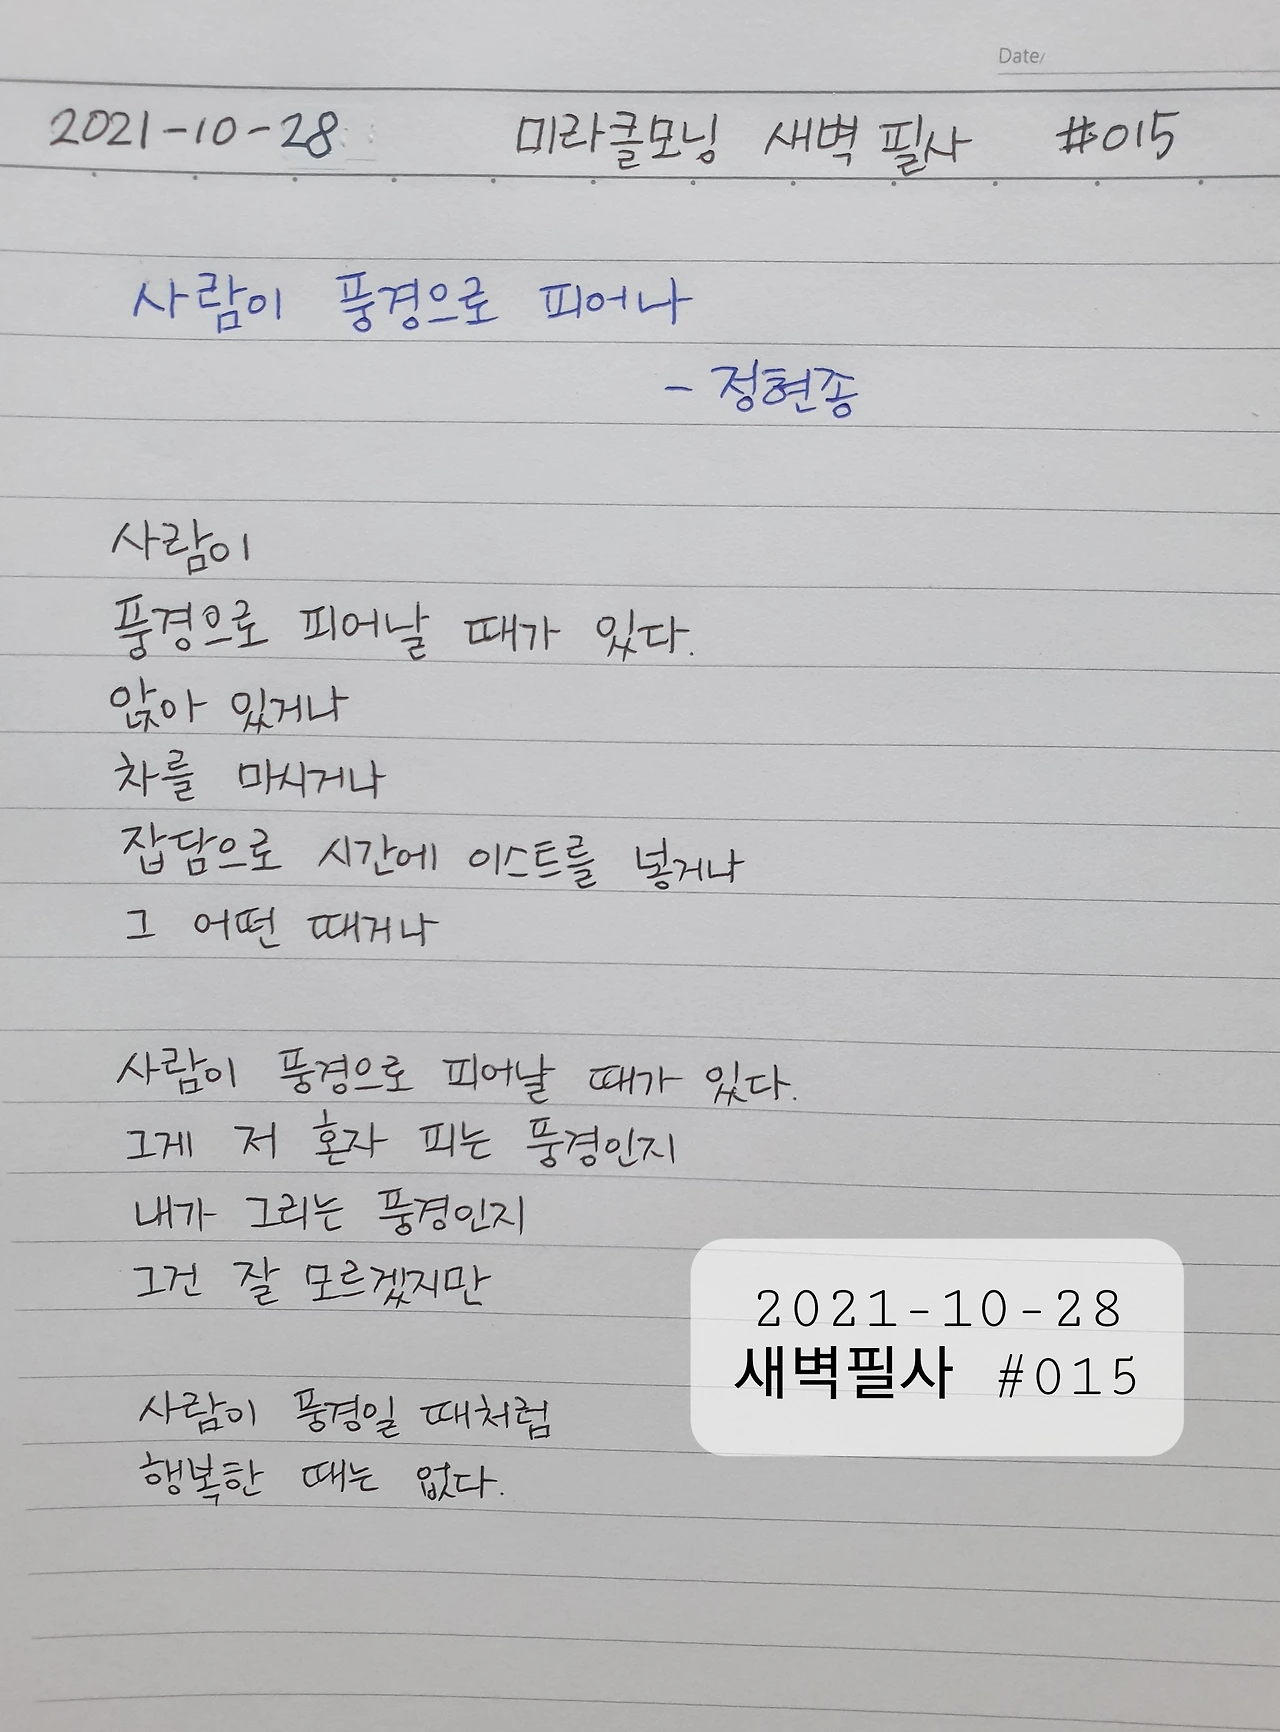 Date/
2021-10-28 미라클모닝 새벽 필사 #015
사람이 풍경으로 피어나
- 정현종
사람이
풍경으로 피어날 때가 있다.
앉아 있거나
차를 마시거나
잡담으로 시간에 이스트를 넣거나
그 어떤 때거나
사람이 풍경으로 피어날 때가 있다.
그게 저 혼자 피는 풍경인지
내가 그리는 풍경인지
그건 잘 모르겠지만
사람이 풍경일 때처럼
행복한 때는 없다.
2021-10-28
새벽필사 #015